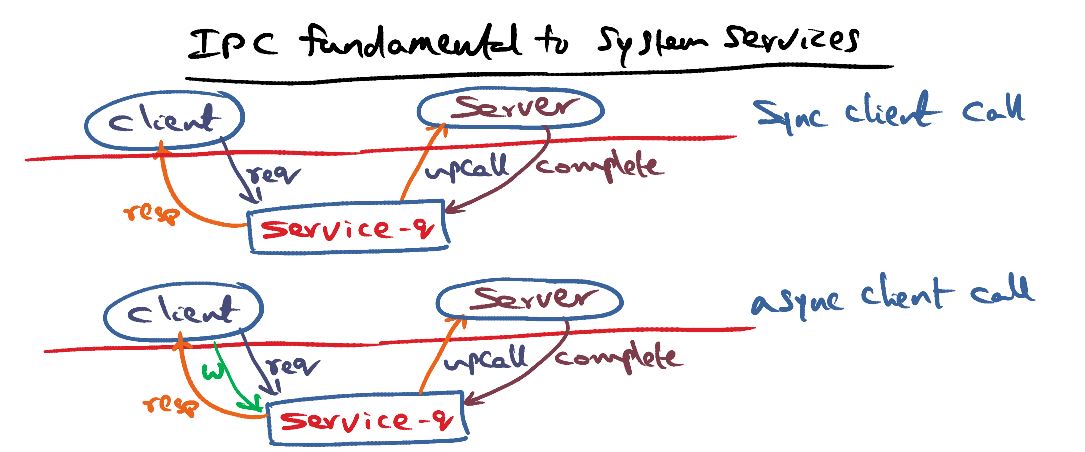 IPC fundamental to System Services
client
Server
Sync client call
req
upcall
complete
resp
Service-q
client
Server
async client call
req
upcall
complete
w
resp
Service-q